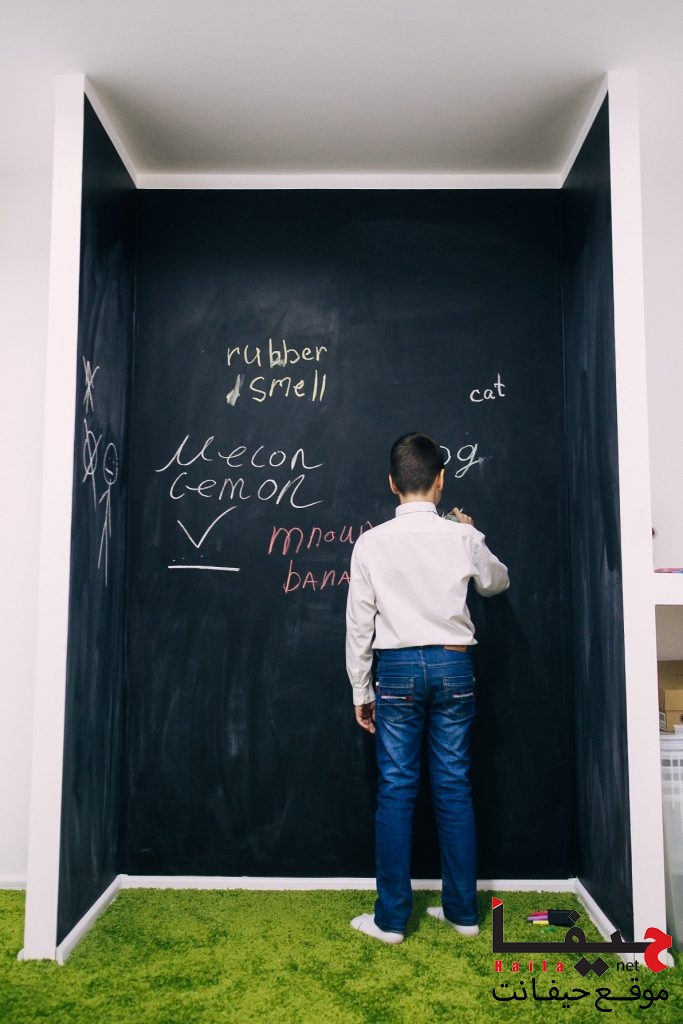 rubber
smell
cat
Mecon
Lemon
og
mnou
bana
حيفا
Haifa net
موقع حيفانت